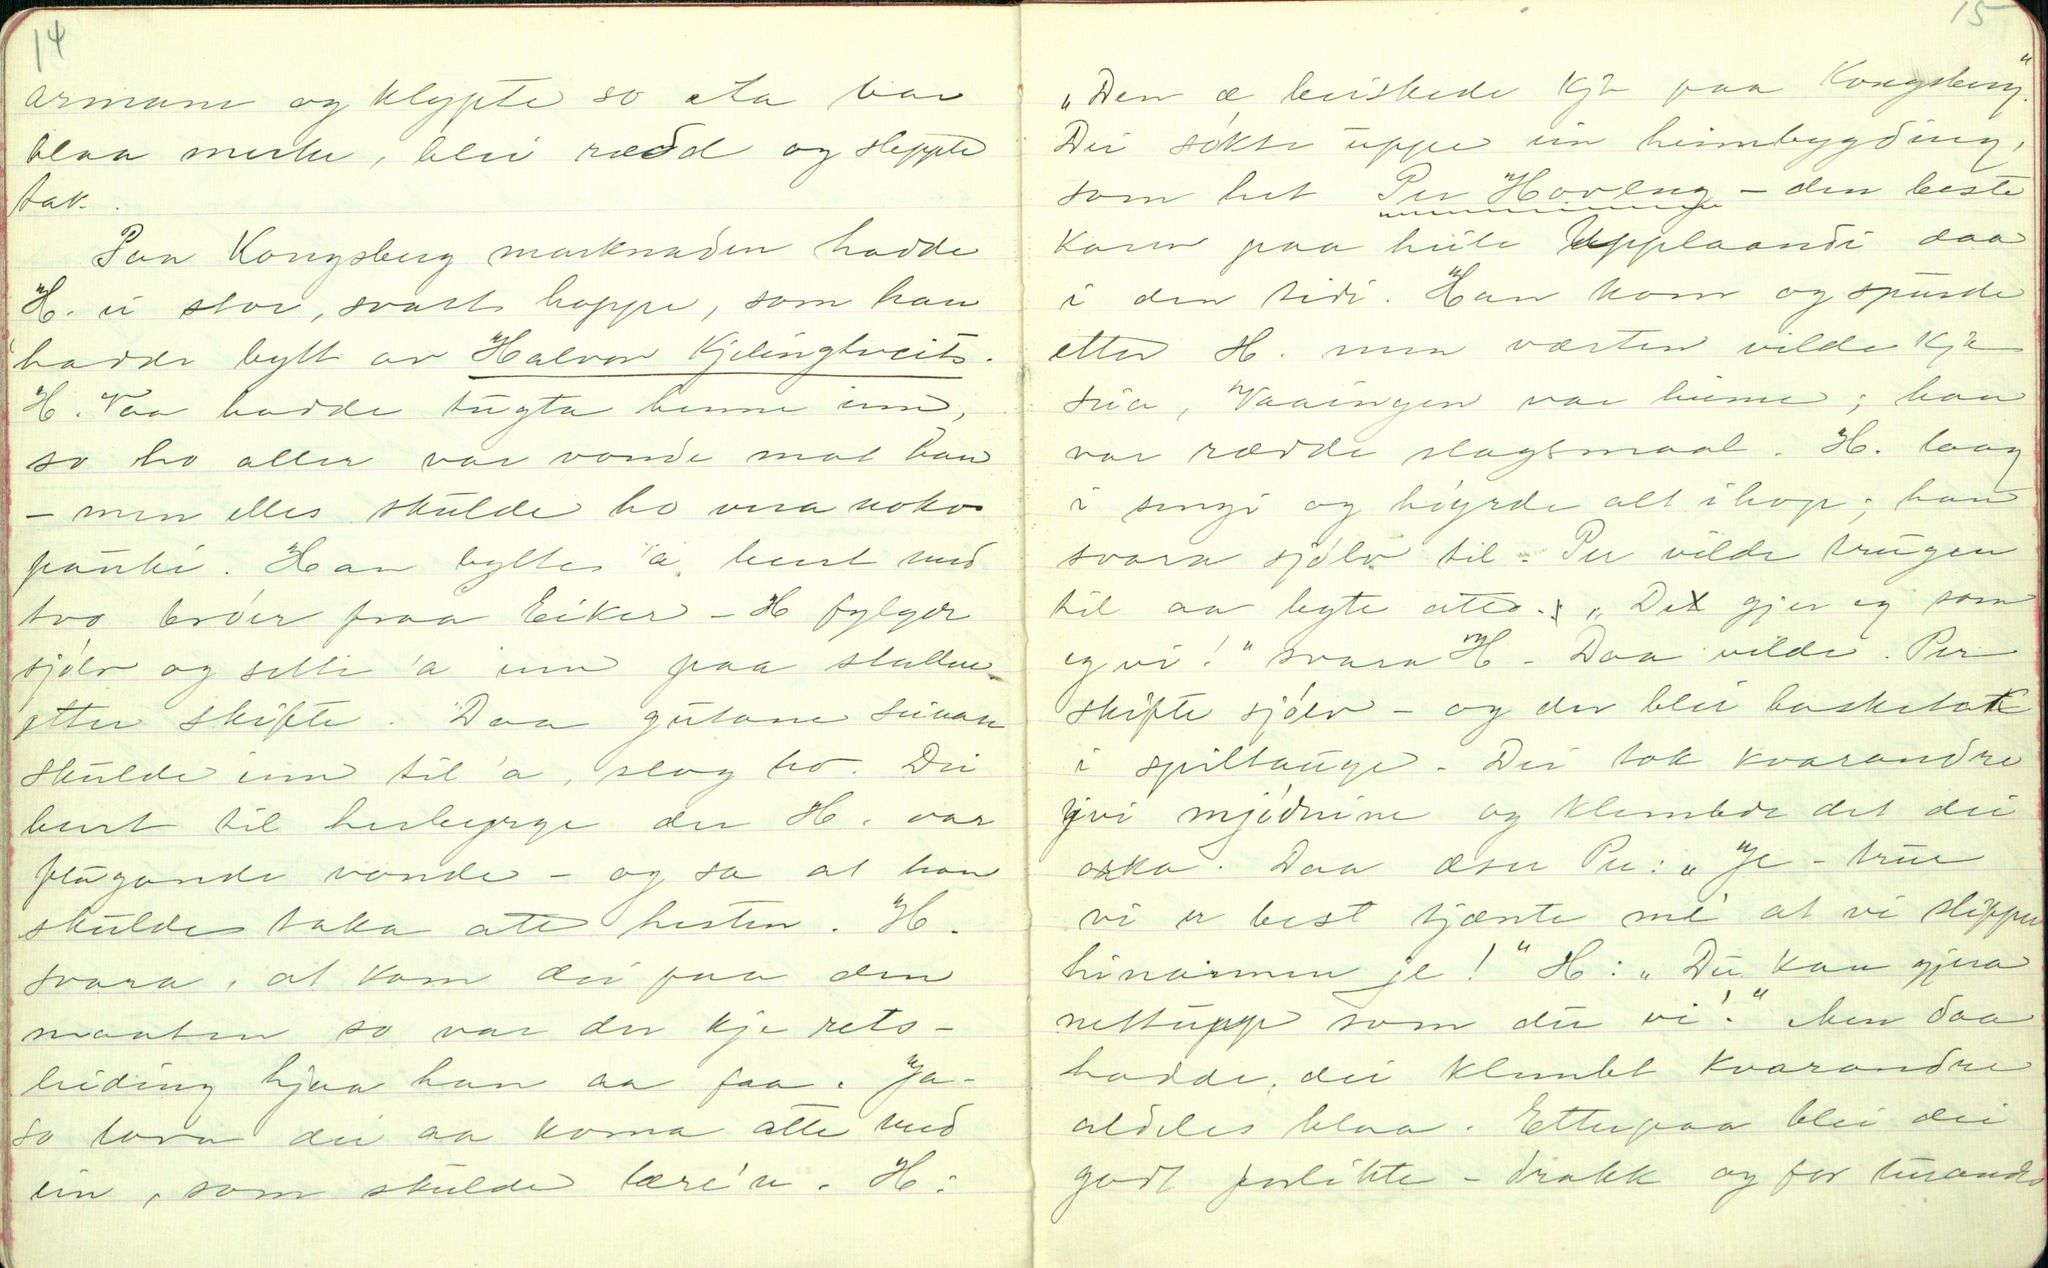 14
armane og klypte so ata var
blaa merke, blei rædd og sleppte
tak.
Paa Kongsberg marknaden hadde
H. ei stor, svart hoppe, som han
hadde bytt av Halvor Kjelingtveits.
H. Vaa hadde tugta henne inn,
so ho aller var vonde mot han
– men elles skulde ho vera noko
paunki. Han bytte 'a burt med
tvo brøer fraa Eiker – H fylgde
sjølv og sette 'a inn paa stallen
etter skifte. Daa gutane seinare
skulde inn til 'a, slog ho. Dei
burt til herbyrge der H. var
flugande vonde – og sa at han
skulde taka atte hesten. H.
svara, at kom dei paa den
maaten so var der kje rets-
leiding hjaa han aa faa. Ja-
so lova dei aa koma atte med
ein, som skulde lære'n. H:
15
„Den æ beiskede kje paa Kongsberg."
Dei søkte uppe ein heimbygding,
som het Per Hoveng – den beste
karen paa heile Upplaandi daa
i den tidi. Han kom og spurde
etter H. men værten vilde kje
seia, Vaaingen var heime; han
var rædde slagsmaal. H. laag
i sengi og høyrde alt ihop; han
svara sjølv til. Per vilde trugen
til aa byte atte. „Det gjer eg som
eg vi!" svara H. Daa vilde Per
skifte sjølv – og der blei basketak
i spiltauge. Dei tok kvarandre
yvi mjødnine og klembde det dei
orka. Daa æser Per: „Je – trur
vi er best tjænte mé at vi slipper
hinannen je!" H: „Du kan gjera
nettupp som du vi!" Men daa
hadde dei klembt kvarandre
aldeles blaa. Etterpaa blei dei
godt forlikte – drakk og for